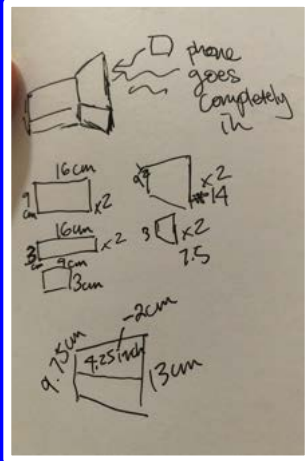 phone
goes
completely
in
16cm
9
cm
x2
x2
14
16cm
3
cm
x2
3
x2
7.5
9cm
3cm
-2cm
9.75cm
4.25inch
13cm